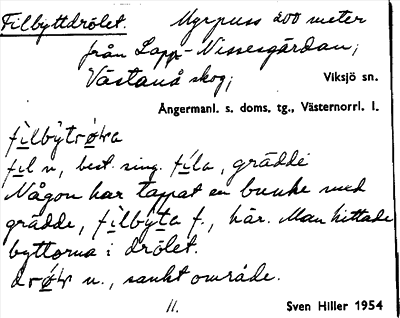 Filbyttdrölet. Myrpuss 200 meter
från Lapp-Nissesgårdan;
Västanå skog; Viksjö sn.
Ångermanl. s. doms. tg., Västernorrl. l.
fìlbỳtrøⱶa
fil n, best. sing. fíla, grädde
Någon har tappat en bunke med
grädde, fìlbỳta f., här. Man hittade
byttorna i drölet.
n., sankt område.
11. Sven Hiller 1954